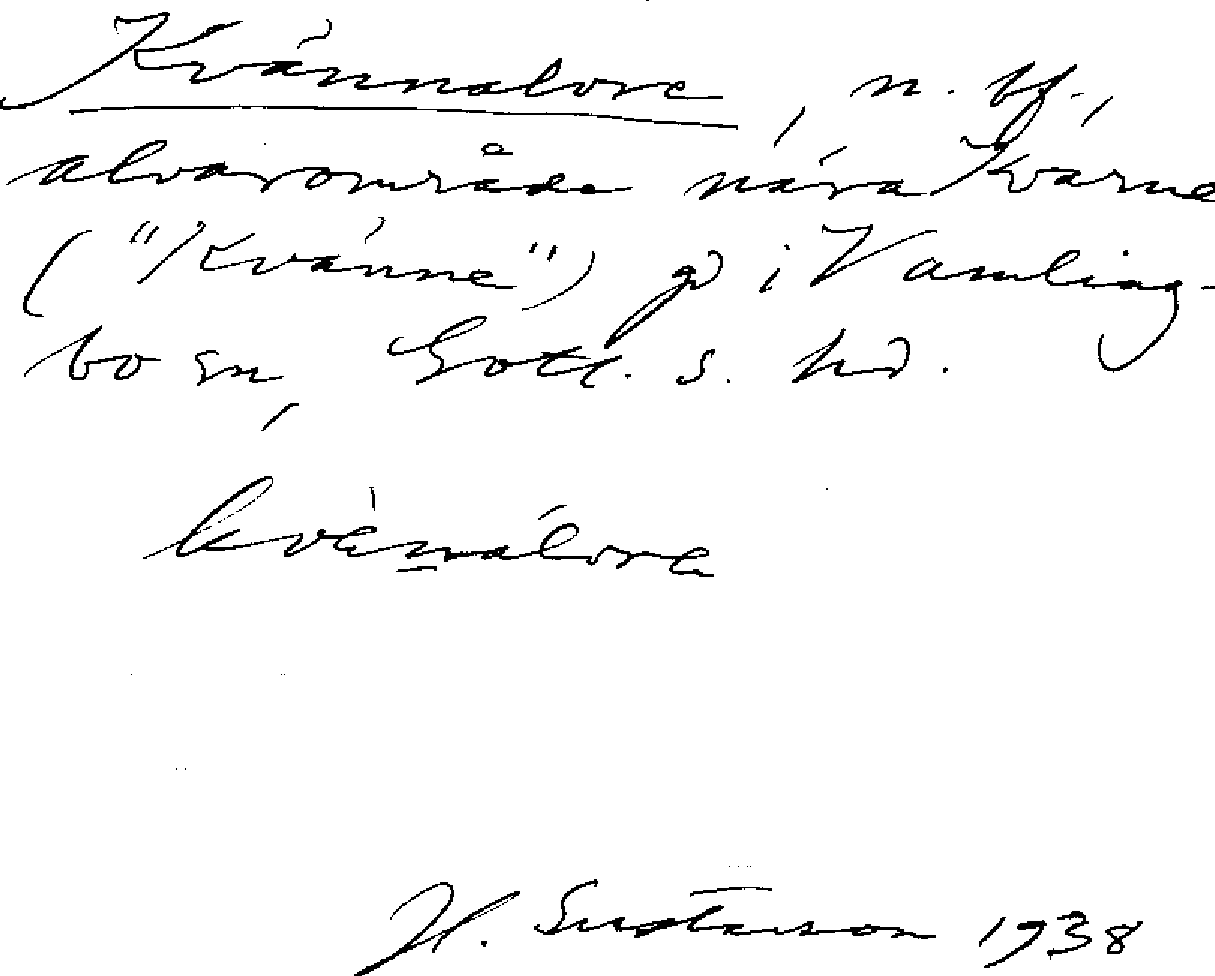 Kvännalvre, n. bf.,
alvarområde nära Kvarne
("Kvänne") gd i Vamling-
bo sn, Gotl. s. hd.
kvänalvre
H. Gustavson 1938